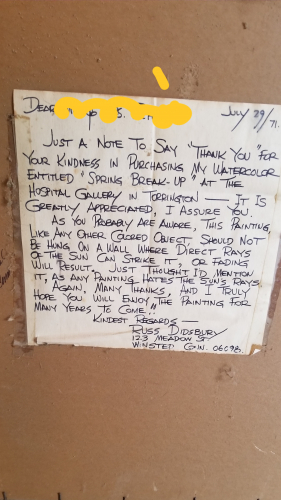 DEAR
JULY 29/71.
JUST A NOTE TO SAY "THANK YOU" FOR
YOUR KINDNESS IN PURCHASING MY WATERCOLOR
ENTITLED "SPRING BREAK-UP" AT THE
HOSPITAL GALLERY IN TORRINGTON — IT IS
GREATLY APPRECIATED, I ASSURE YOU.
AS YOU PROBABLY ARE AWARE, THIS PAINTING,
LIKE ANY OTHER COLORED OBJECT, SHOULD NOT
BE HUNG ON A WALL WHERE DIRECT RAYS
OF THE SUN CAN STRIKE IT, OR FADING
WILL RESULT. JUST THOUGHT I'D MENTION
IT, AS ANY PAINTING HATES THE SUN'S RAYS.
AGAIN, MANY THANKS, AND I TRULY
HOPE YOU WILL ENJOY THE PAINTING FOR
MANY YEARS TO COME!!
KINDEST REGARDS —
RUSS DIDSBURY
123 MEADOW ST
WINSTED, CONN. 06098.